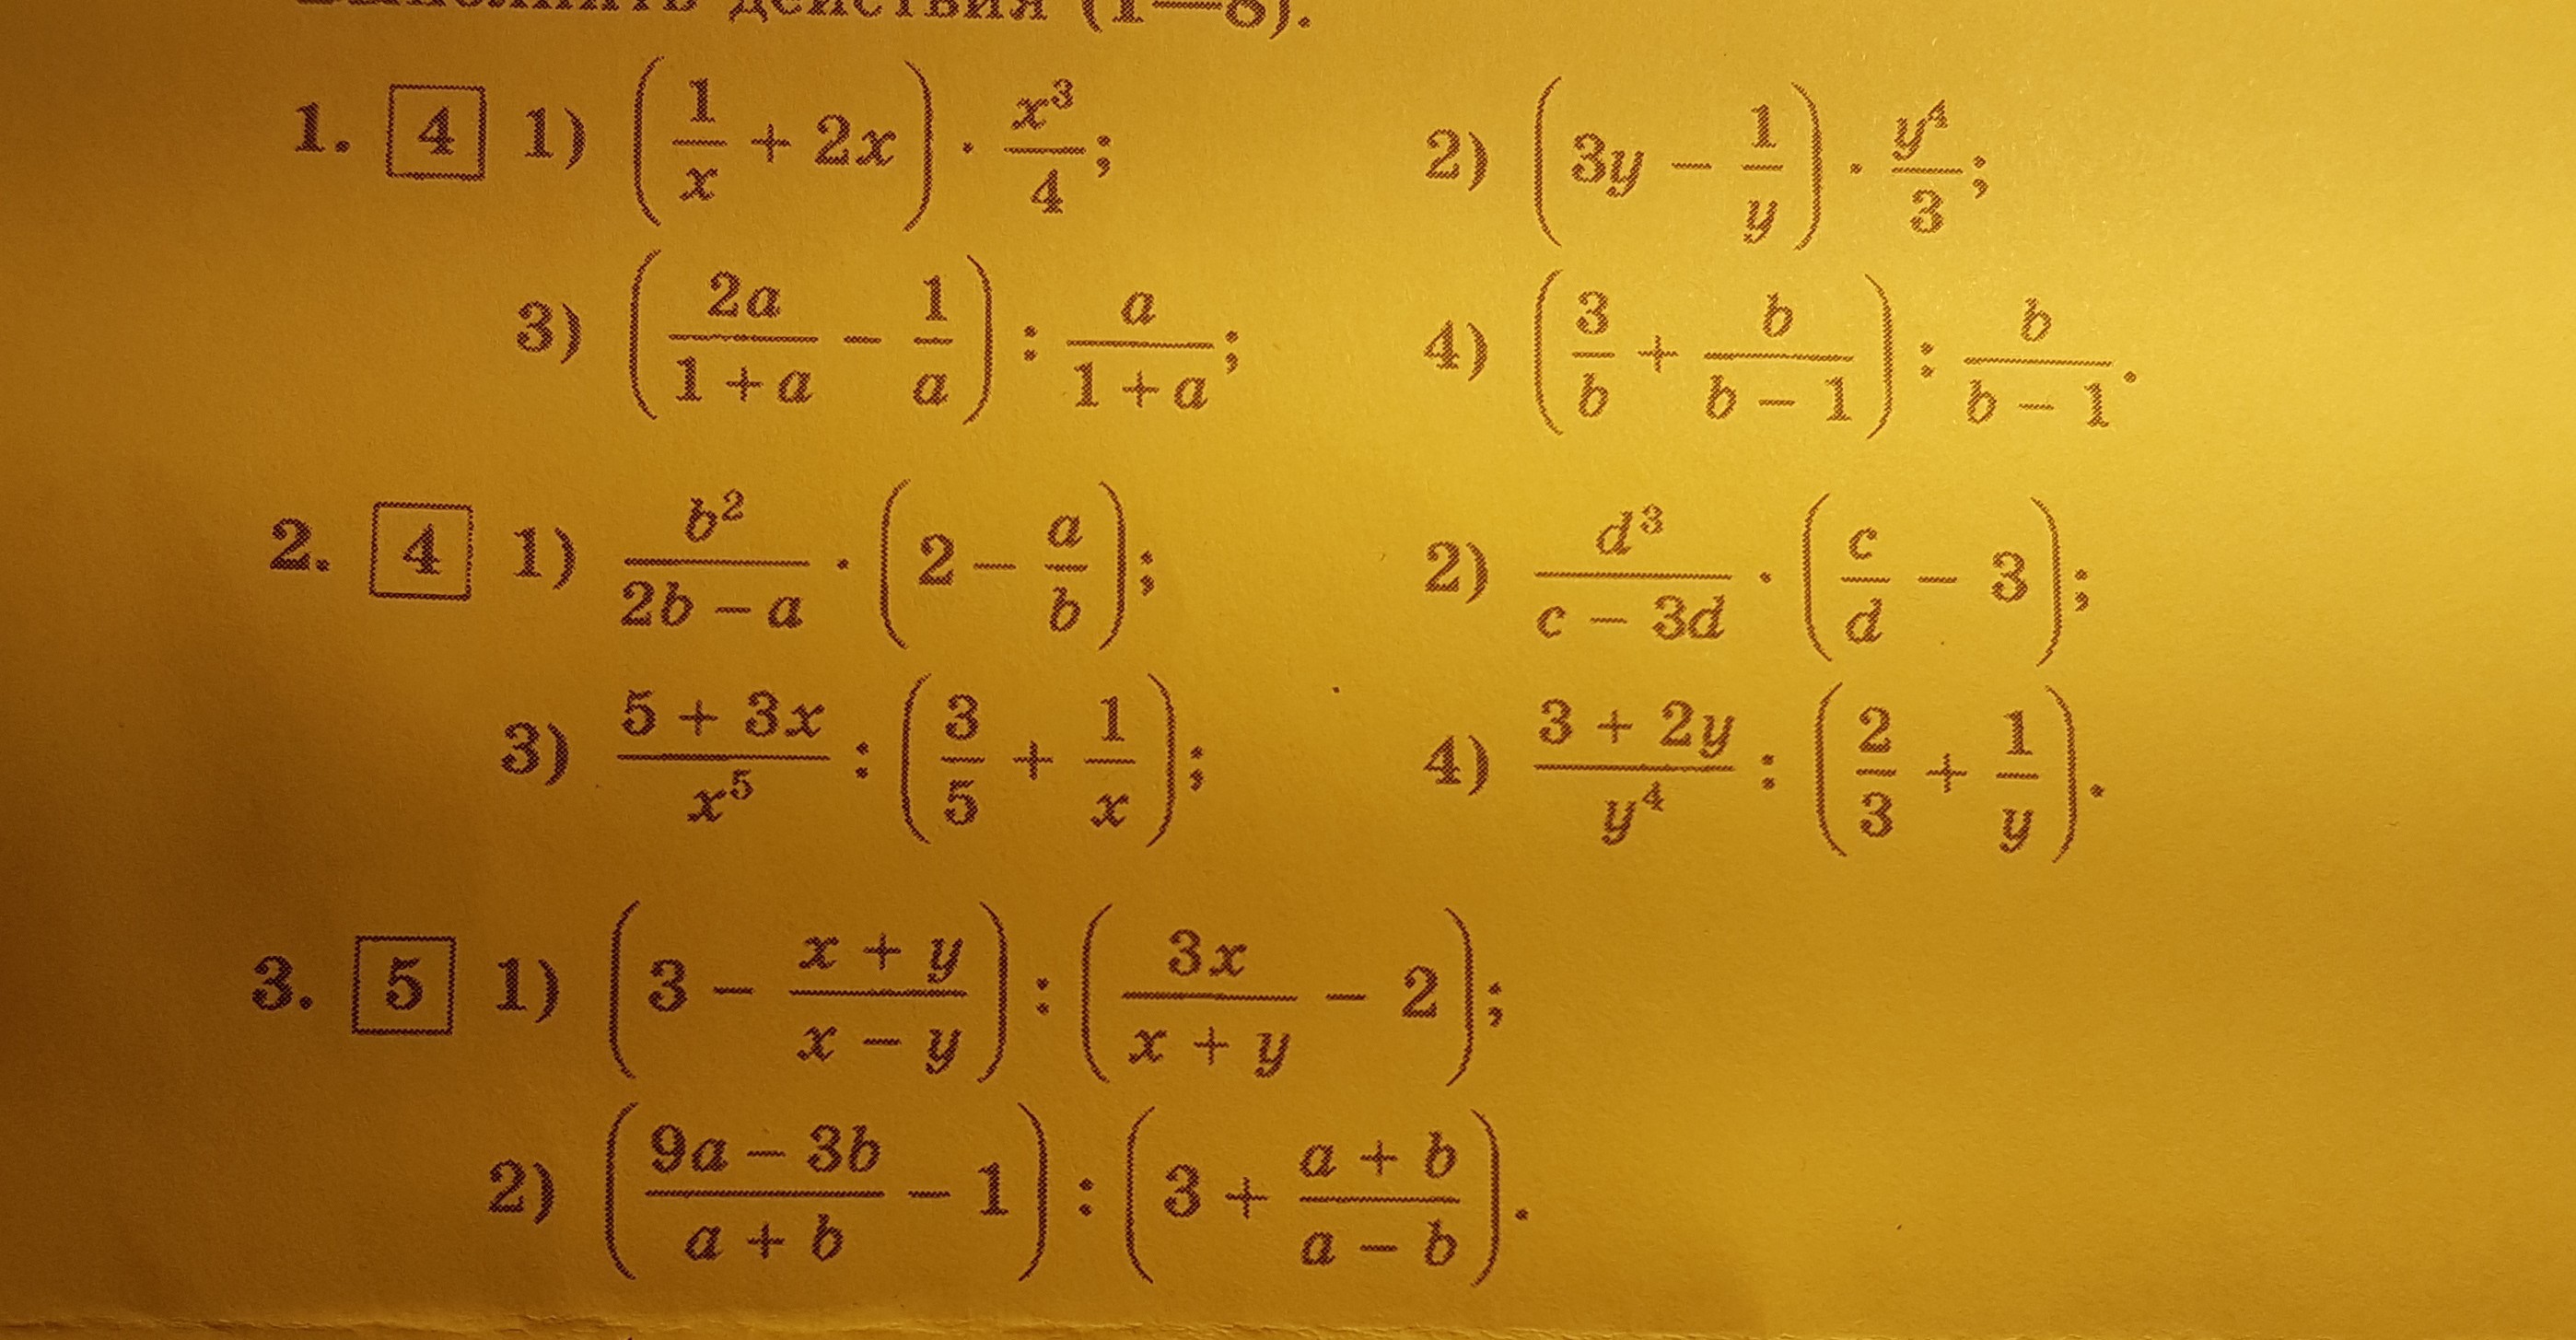 Выполнить действия (1—8).
1. 4 1) (1/x + 2x) · x³/4; 2) (3y − 1/y) · y⁴/3;
3) (2a/(1 + a) − 1/a) : a/(1 + a); 4) (3/b + b/(b − 1)) : b/(b − 1).
2. 4 1) b²/(2b − a) · (2 − a/b); 2) d³/(c − 3d) · (c/d − 3);
3) (5 + 3x)/x⁵ : (3/5 + 1/x); 4) (3 + 2y)/y⁴ : (2/3 + 1/y).
3. 5 1) (3 − (x + y)/(x − y)) : (3x/(x + y) − 2);
2) ((9a − 3b)/(a + b) − 1) : (3 + (a + b)/(a − b)).